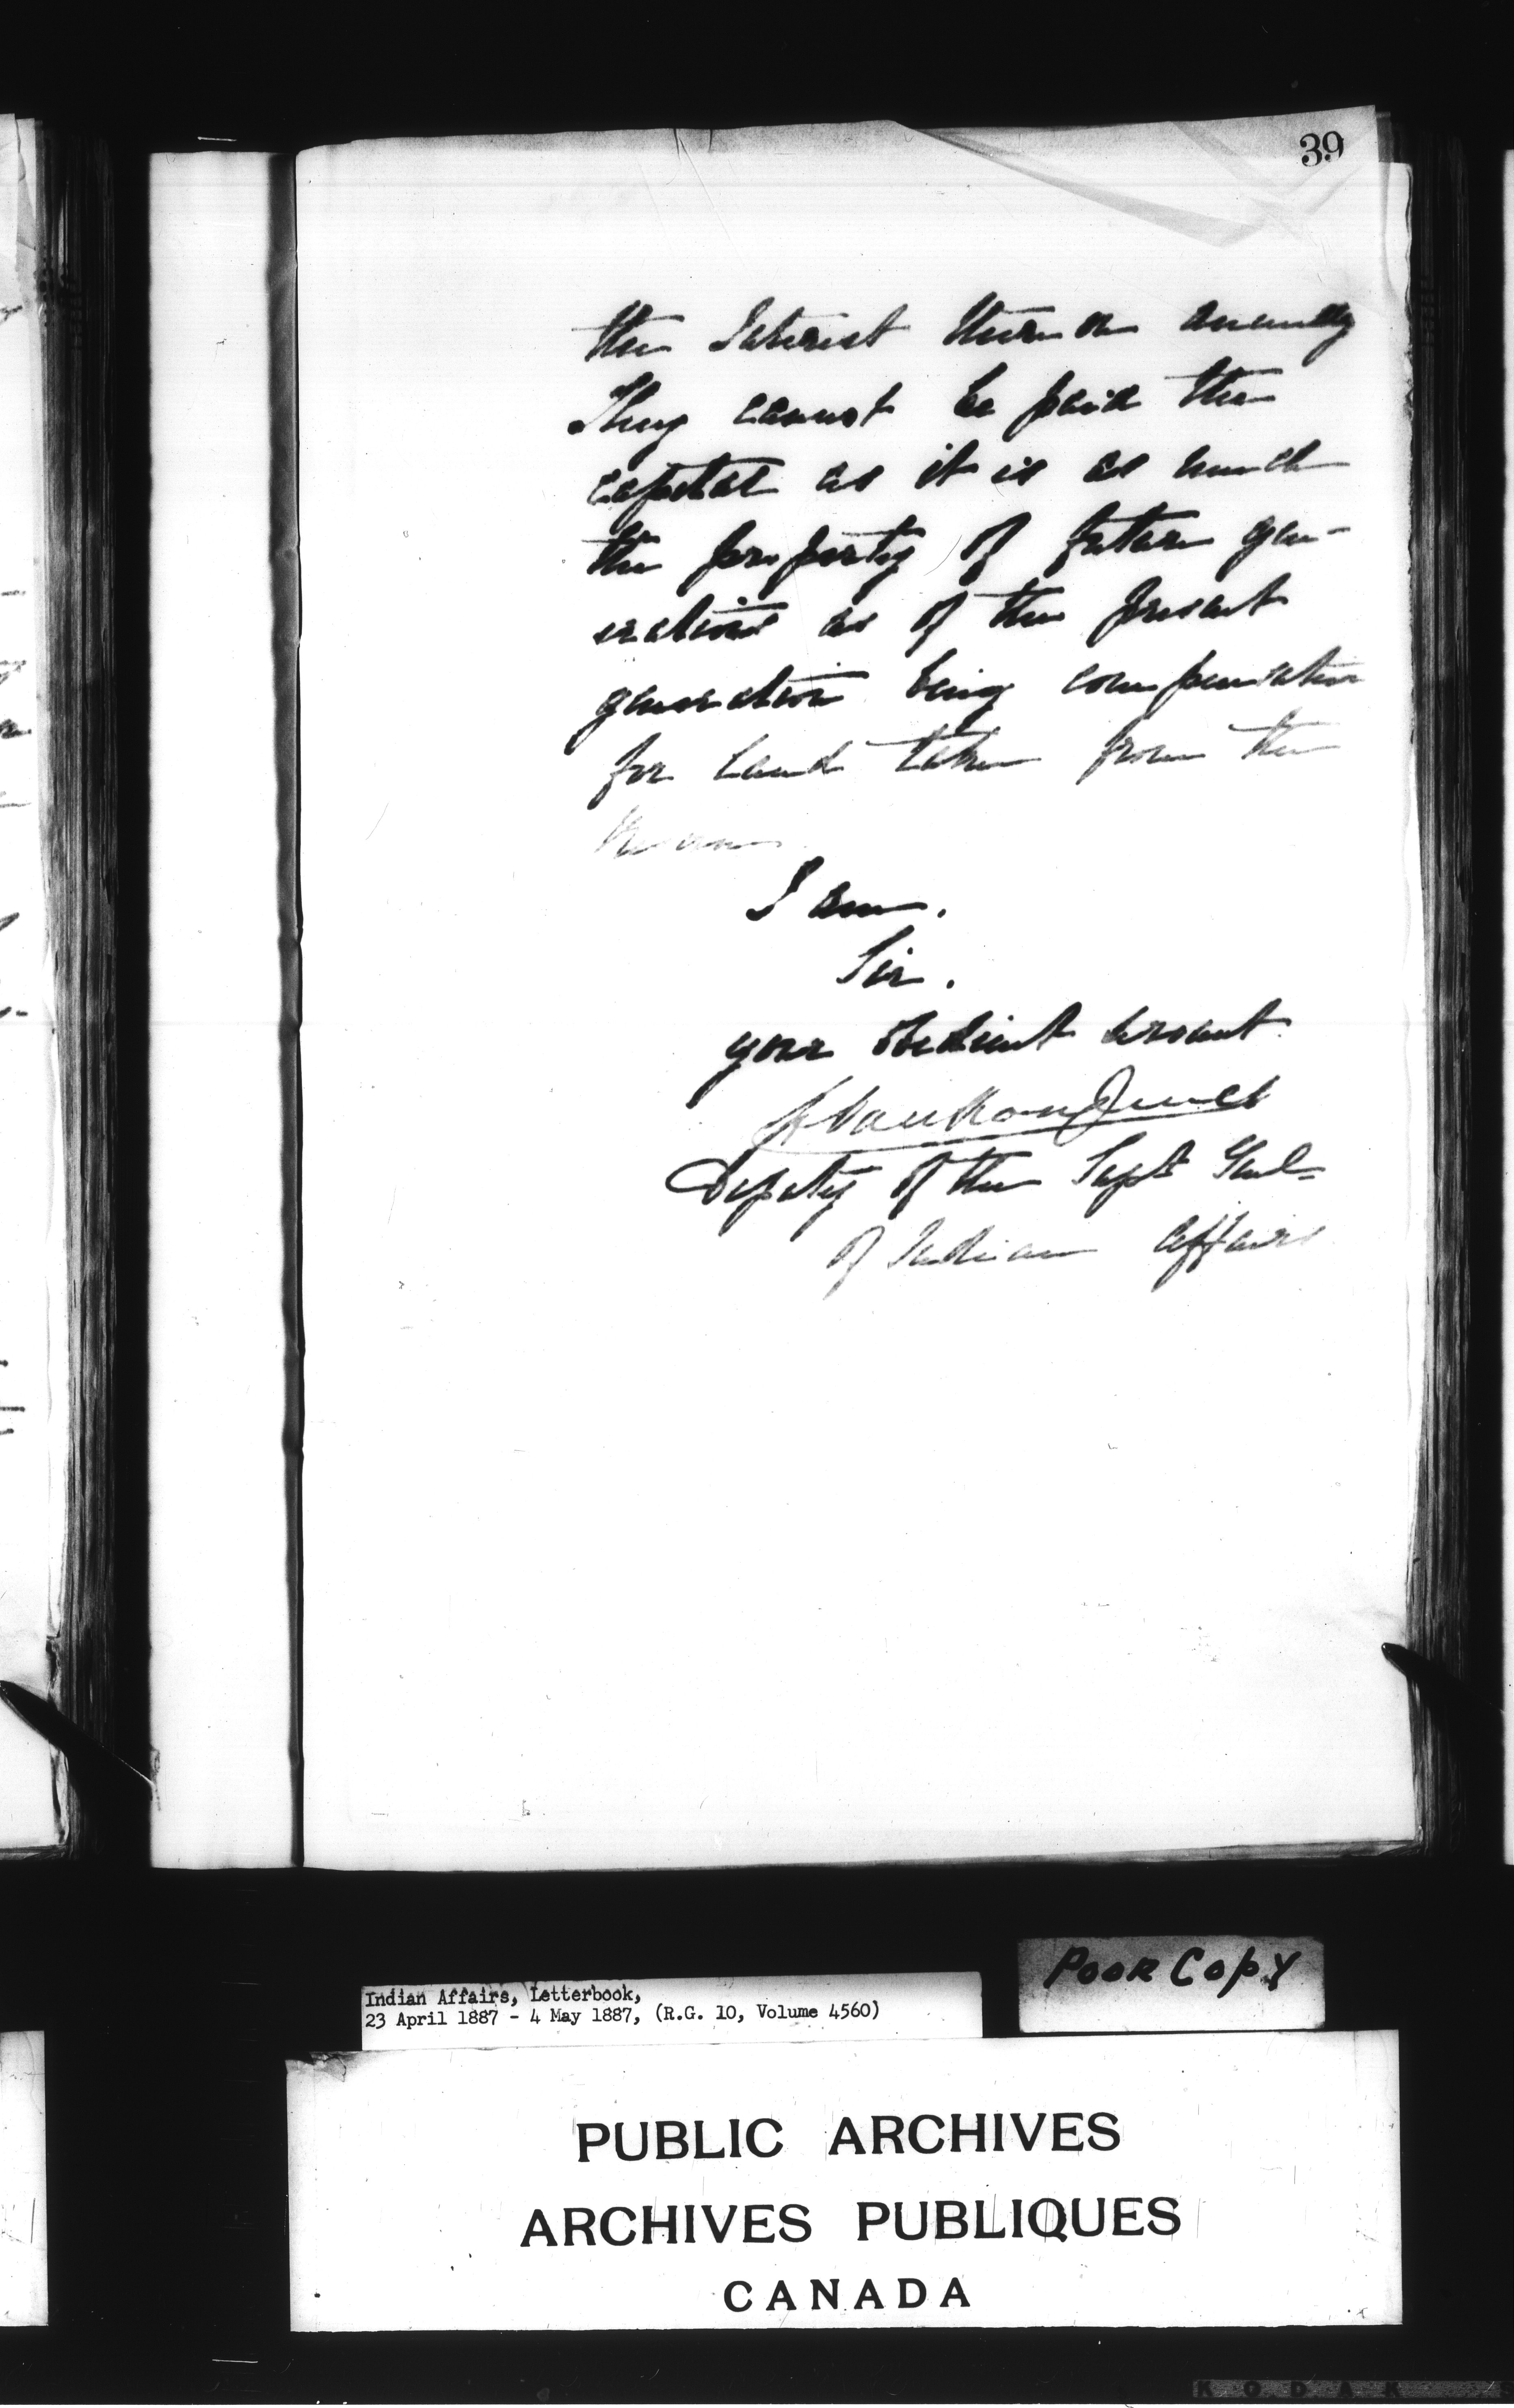 39
the Interest thereon annually
They cannot be paid the
capital as it is as much
the property of future gen-
erations as of the present
generation being compensation
for Land taken from the
I am.
Sir.
your obedient servant
L Vankoughnet
Deputy of the Supt Genl
of Indian Affairs
Poor Copy
Indian Affairs, Letterbook,
23 April 1887 - 4 May 1887, (R.G. 10, Volume 4560)
PUBLIC ARCHIVES
ARCHIVES PUBLIQUES
CANADA
KODAK S